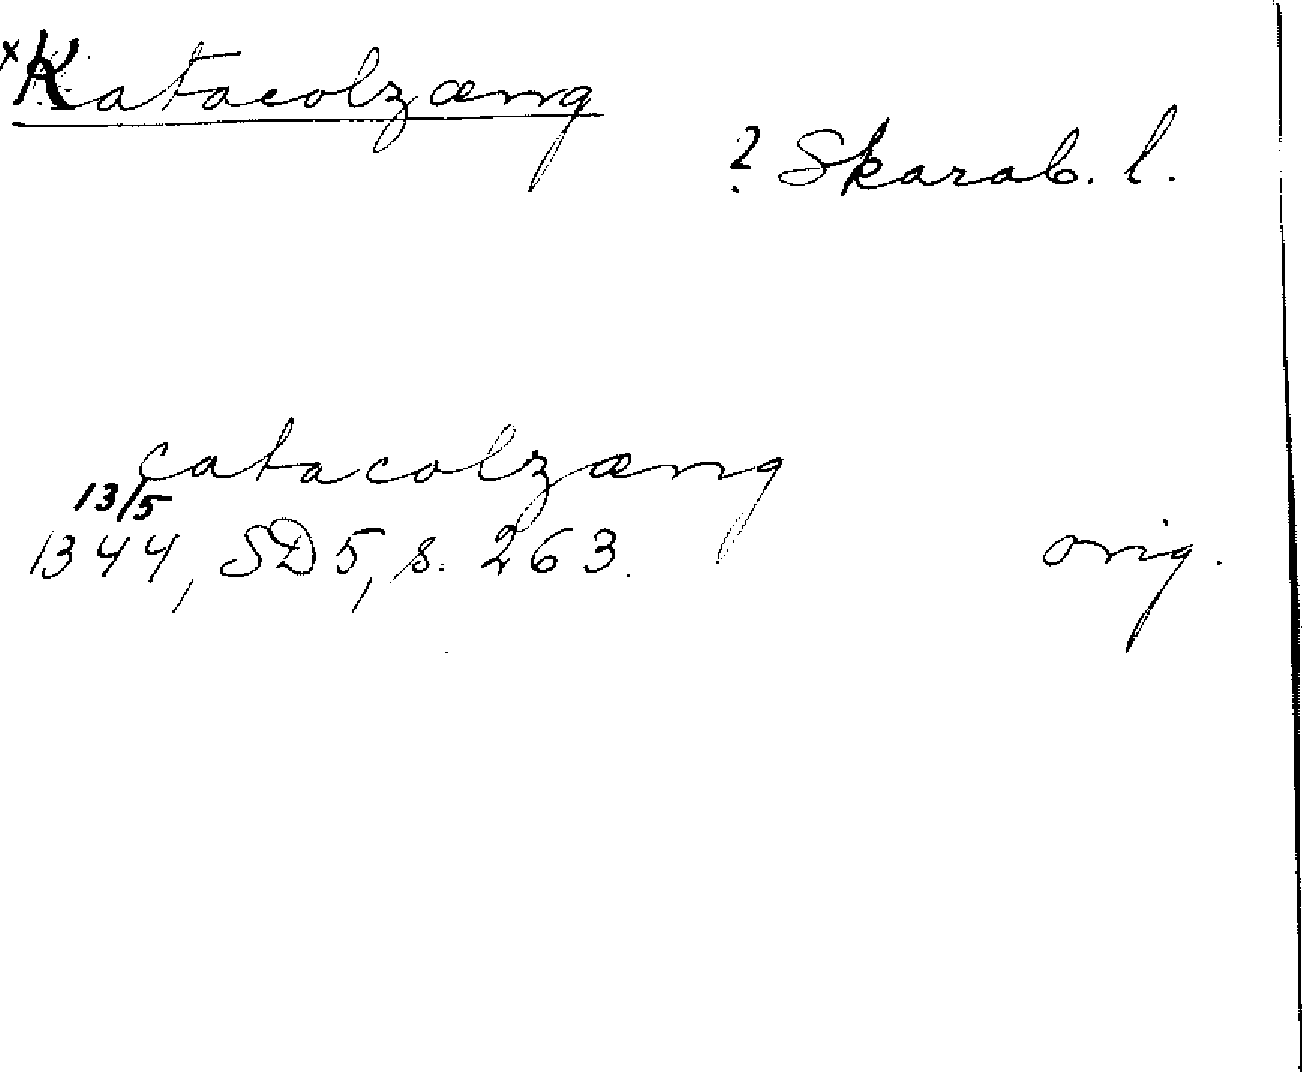 ×Katacolzæng
? Skarab. l.
catacolzæng
13/5
1344, SD 5, s. 263.
orig.